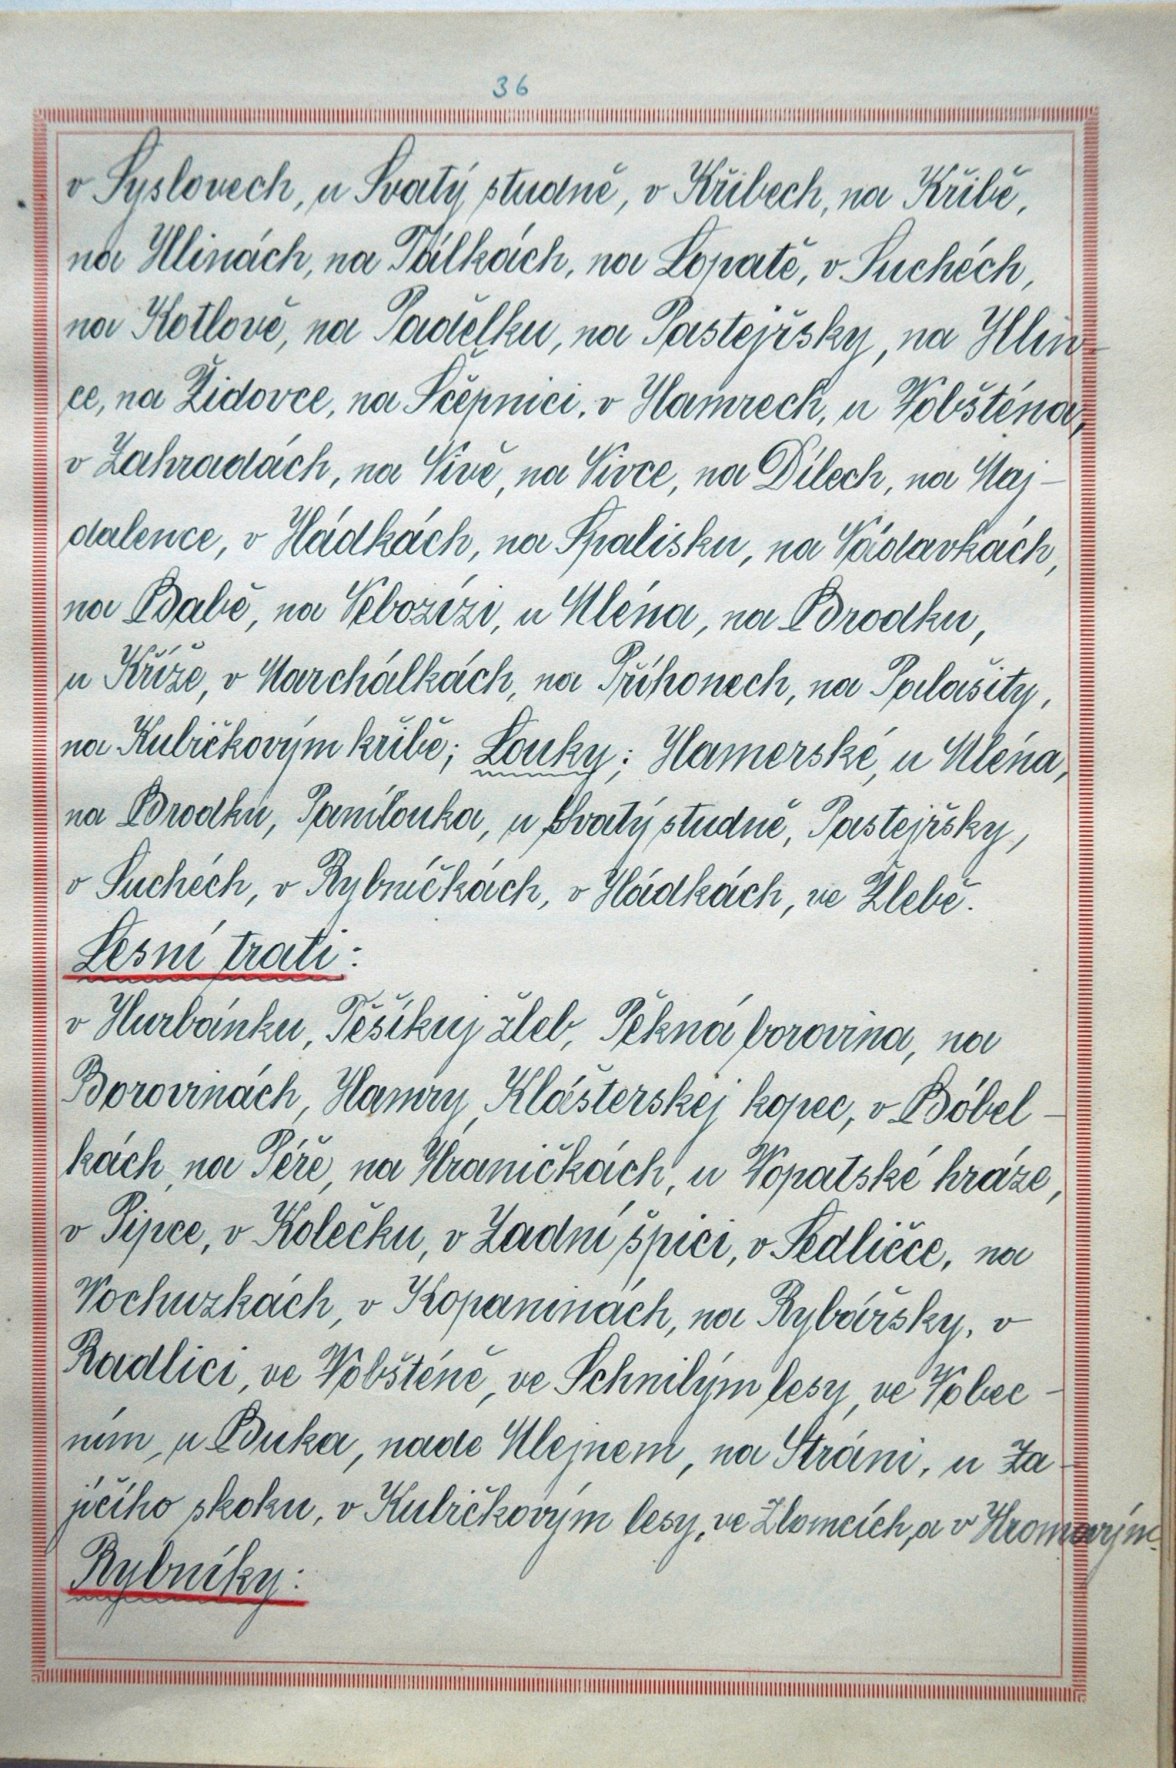 36
v Syslovech, u Svatý studně, v Křibech, na Křibě,
na Hlinách, na Pálkách, na Lopatě, v Suchéch,
na Kotlově, na Padělku, na Pastejřsky, na Hlin-
ce, na Židovce, na Sčěpnici, v Hamrech, u Vobšténa,
v Zahradách, na Nivě, na Nivce, na Dílech, na Maj-
dalence, v Hádkách, na Spalisku, na Vádavkách,
na Babě, na Nebozízi, u Mléna, na Brodku,
u Kříže, v Marchálkách, na Příhonech, na Palašity,
na Kubičkovým křibě; Louky; Hamerské, u Mléna,
na Brodku, Panílouka, u Svatý studně, Pastejřsky,
v Suchéch, v Rybníčkách, v Hádkách, ve Žlebě.
Lesní trati:
v Hurbánku, Těšíkuj žleb, Pěkná borovina, na
Borovinách, Hamry, Klášterskej kopec, v Bóbel-
kách, na Péře, na Hraničkách, u Vopatské hráze,
v Pipce, v Kolečku, v Zadní špici, v Sedličce, na
Vochuzkách, v Kopaninách, na Rybářsky, v
Radlici, ve Vobšténě, ve Schnilým lesy, ve Vobec-
ním, u Buka, nade Mlejnem, na Stráni, u Za-
jíčího skoku, v Kubičkovým lesy, ve Zlomcích, a v Hromovým.
Rybníky: